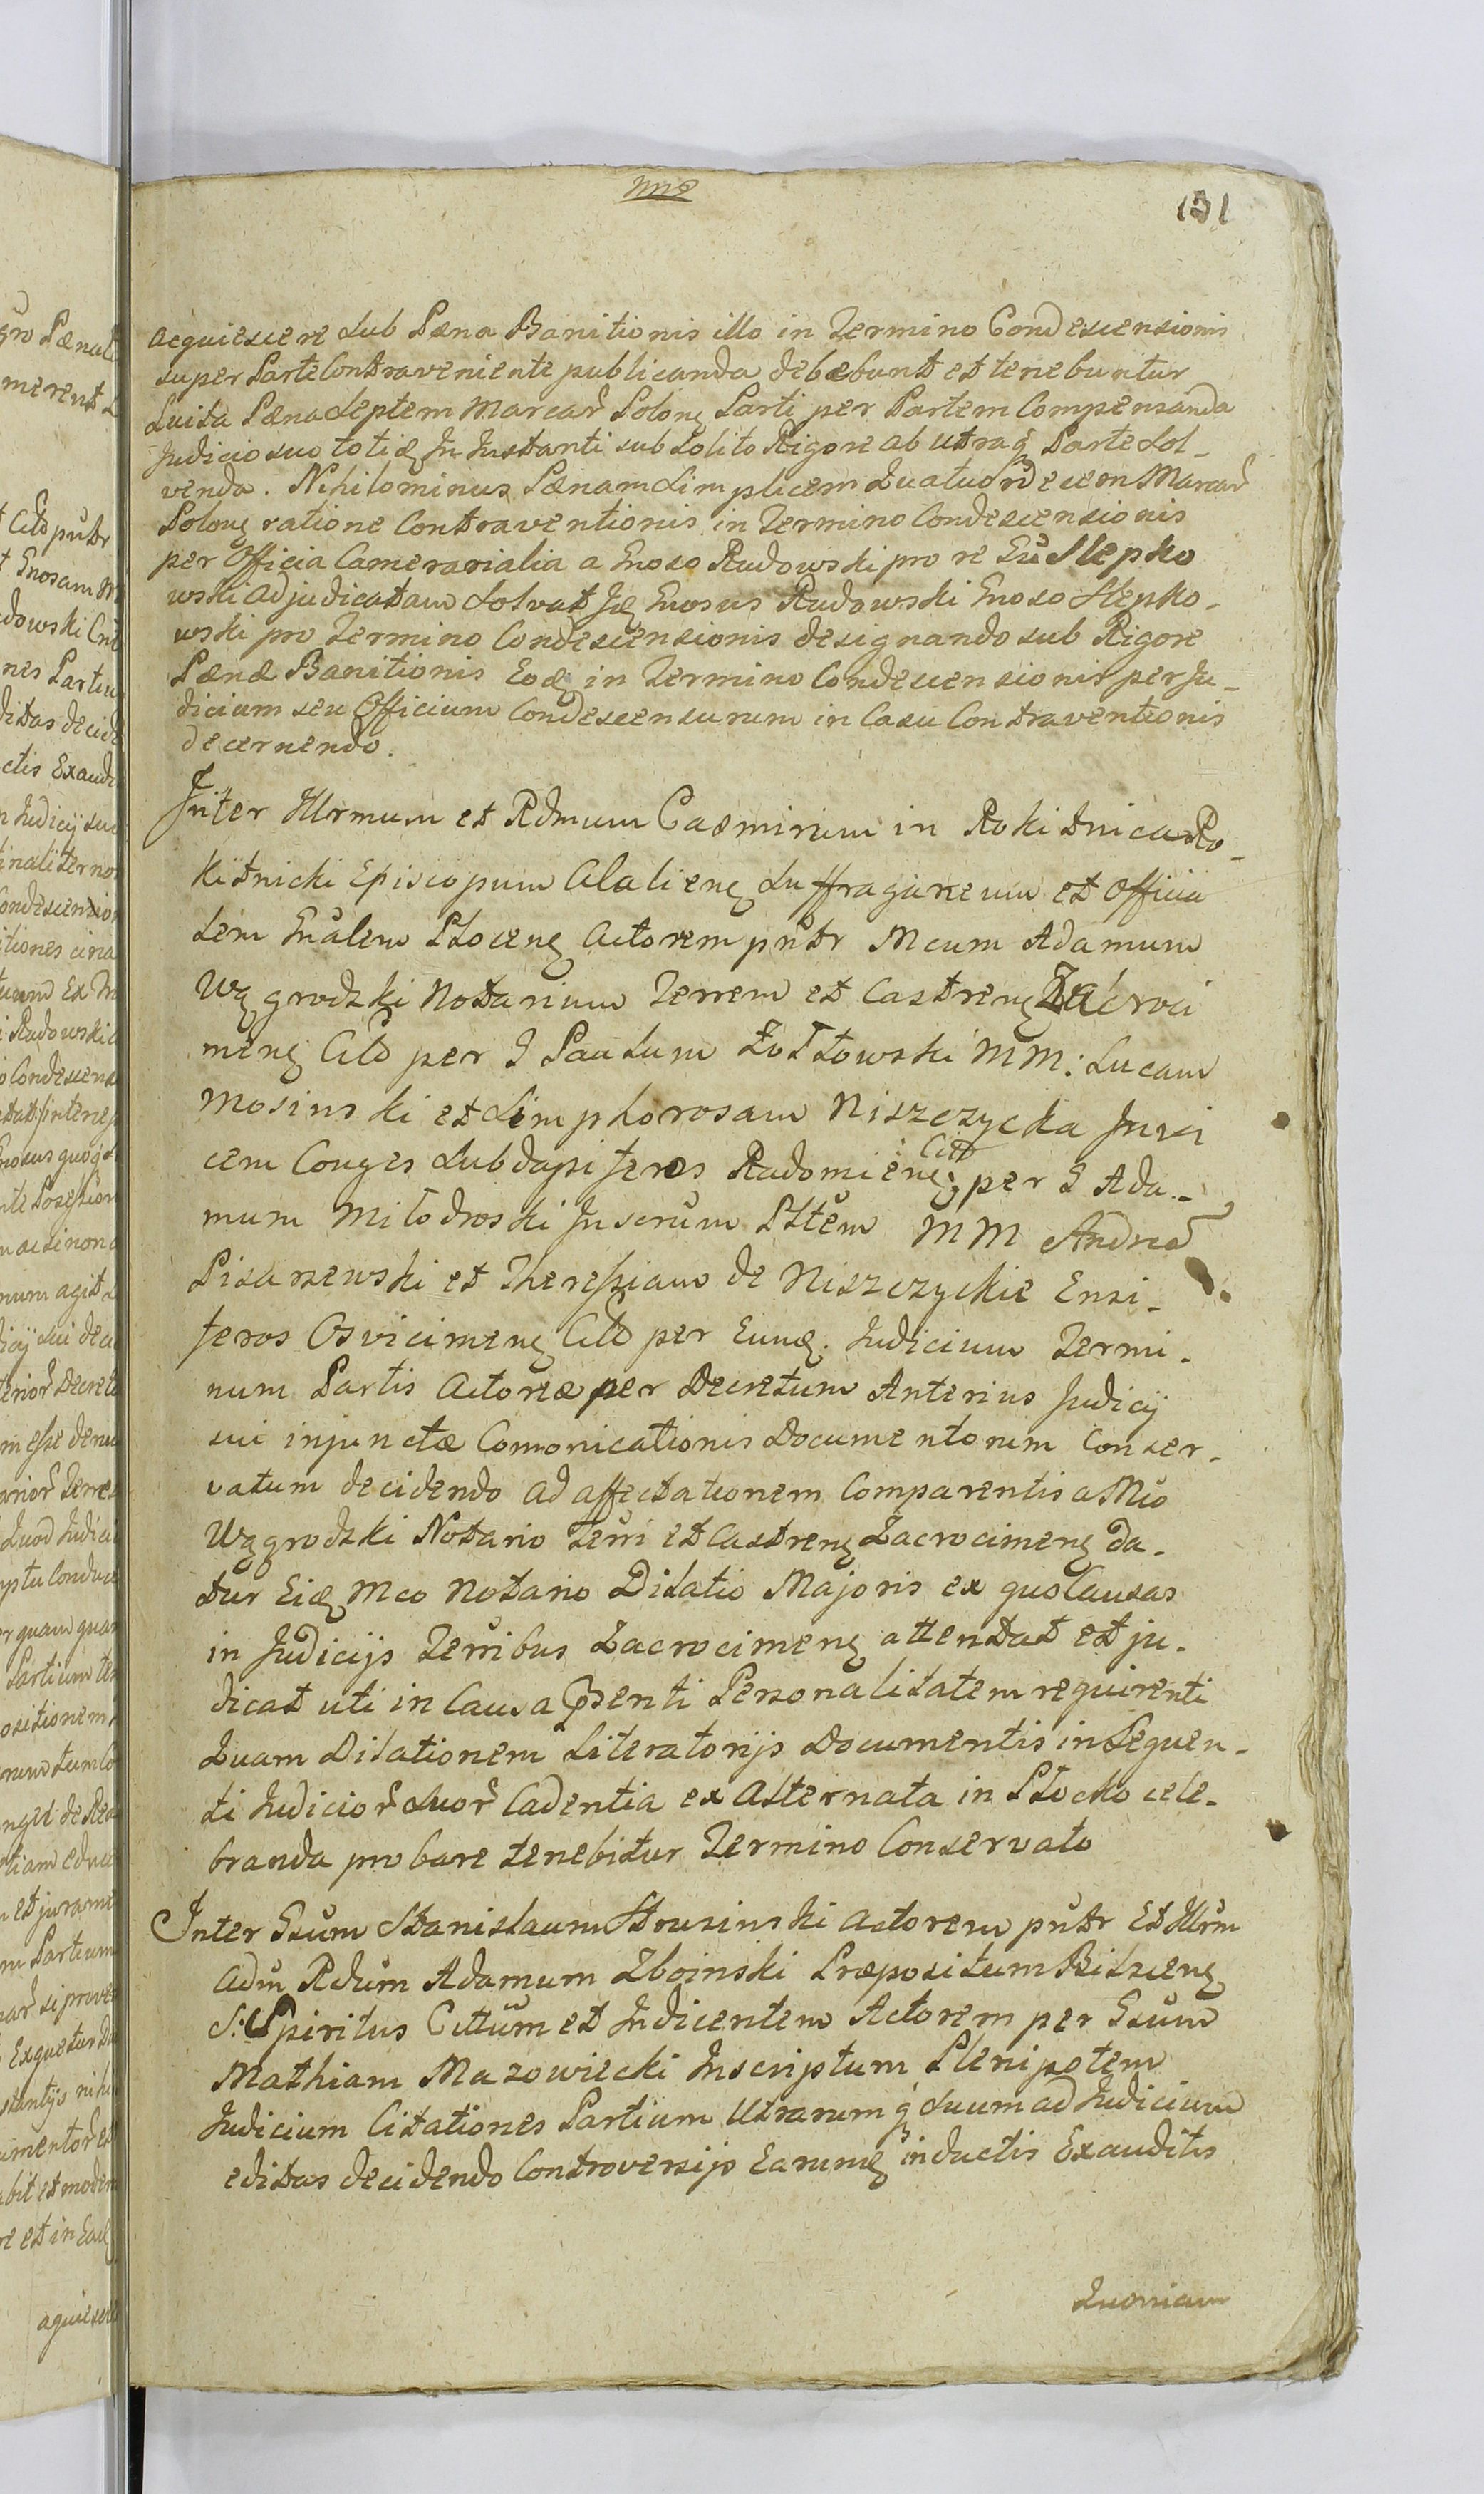 131
acquiescere sub Pæna Banitionis illo in Termino Condescensionis
super Parte Contraveniente publicanda debebunt et tenebuntur
Luita Pæna Septem Marcar̃ Polonę Parti per Partem Compensanda
Judicio suo totię In Instanti sub Solito Rigore ab utraq Parte Sol-
venda. Nihilominus Pænam Simplicem Quatuordecem Marcar̃
Polonę ratione Contraventionis in Termino Condescensionis
per Officia Camerarialia a Gnoso Radowski pro re Gũ Slepko
wski adjudicatam Solvat Ję Gnosus Radowski Gnoso Slepko-
wski pro Termino Condescensionis designando sub Rigore
Pænæ Banitionis Eoę in Termino Condescensionis per Ju-
dicium seu Officium Condescensurum in Casu Contraventionis
decernendo.
Inter Illrmum et Rdmum Casmirum in Rokitnica Ro-
kitnicki Episcopum Alalienę Suffraganeum et Officia
lem Gnãlem Plocenę Actorem pñtr Mcum Adamum
Wągrodzki Notarium Terrem et Castrenę Zacroci
menę Citt per G Paulum Żółtowski MM: Lucam
Mosinski et Simphorosam Niszczycka Invi
cem Conges Subdapiferos Radomienę Citt per G Ada-
mum Milodroski Inscrũm Plłem MM Andreã
Pisarzewski et Theressiam de Niszczyckie Ensi-
feros Osvicimenę Citt per Eunę. Judicium Termi-
num Partis Actoreæ per Decretum Anterius Judicij
sui injunctæ Comonicationis Documentorum Conser-
vatum decidendo ad affectationem Comparentis a Mco
Wągrodzki Notario Terri et Castrenę Zacrocimenę da-
tur Eię Mco Notario Dilatio Majoris ex quo Causas
in Judicijs Terribus Zacrocimenę attentat et ju-
dicat uti in Causa Pñsenti Personalitatem requirenti
Quam Dilationem Literatorijs Documentis in Sequen-
ti Judicior̃ Suor̃ Cadentia ex Alternata in Plocko cele-
branda probare tenebitur Termino Conservato
Inter Gsum Stanislaum Strusinski Actorem pñtr Et Illrũm
Adm̃ Rdum Adamum Zboinski Præpositum Bilscenę
S: Spiritus Cittũm et Indicentem Actorem per Gsum
Mathiam Mazowiecki Inscriptum Plenipotem
Judicium Citationes Partium Utrarumq suum ad Judicium
editas decidendo Controversijs Earumę inductis Exauditis
Quoniam